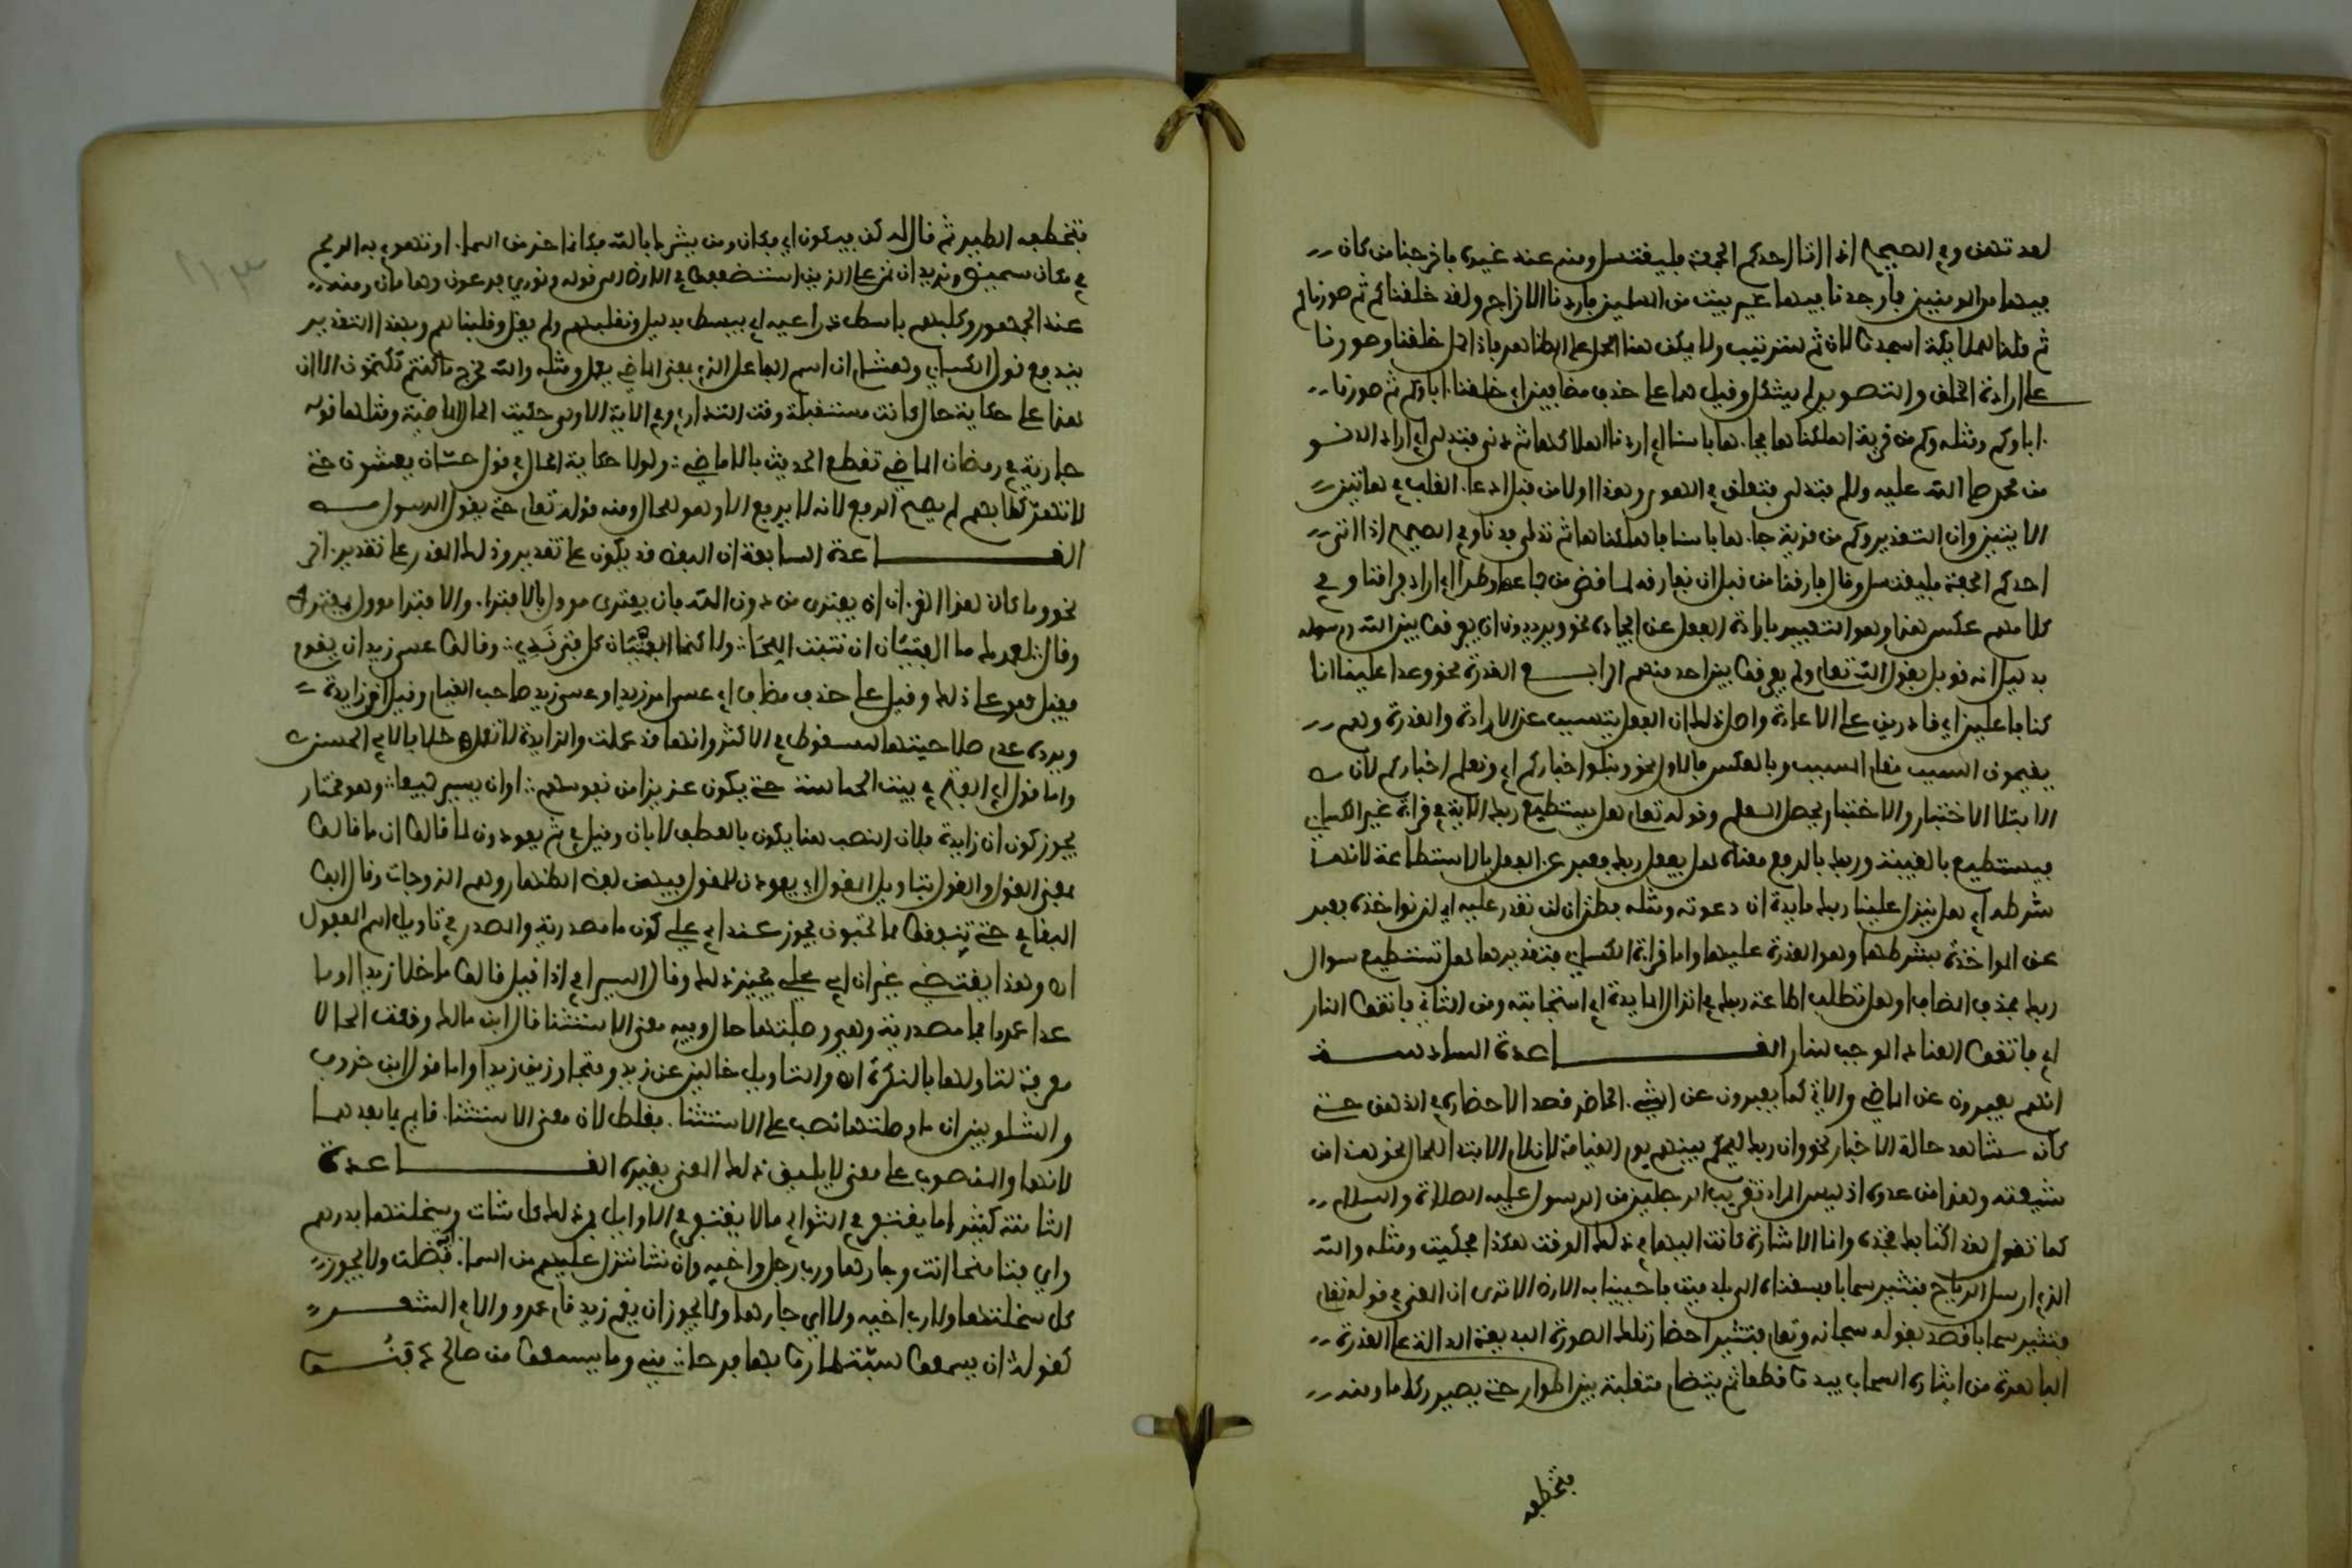 لعدتهن وفي الصحيح اذا اتا احدكم الجمعة فليغتسل ومنه عند غيري فاخرجنا من كان
فيها من المومنين فما وجدنا فيها غير بيت من المسلمين فاردنا الاخراج ولقد خلقنكم ثم صورنكم
ثم قلنا للملايكة اسجدوا لان ثم للترتيب ولا يمكن هنا الحمل على الظاهر فاذا حمل خلقنا وصورنا
على ارادة الخلق والتصوير لم يشكل وقيل هما على حذف مضافين اي خلقنا اباكم ثم صورنا
اباكم ومثله وكم من قرية اهلكناها فجاءها باسنا اي اردنا اهلاكها ثم دنى فتدلى اي اراد الدنو
من محمد صلى الله عليه وسلم فتدلى فتعلق في الهوى وهذا اولا من قول من ادعا القلب في هاتين
الايتين وان التقدير وكم من قرية جاءها باسنا فاهلكناها ثم تدلى فدنا وفي الصحيح اذا اتى
احدكم الجمعة فليغتسل وقال فارقنا من قبل ان نفارقه لما قضى من جماع وطرا اي اراد فراقنا وفي
كلامهم عكس هذا وهو التعبير بارادة الفعل عن ايجاده نحو ويريدون ان يفرقوا بين الله ورسوله
بدليل انه قوبل بقول الله تعالى ولم يفرقوا بين احد منهم الرابــع القدرة نحو وعدا علينا انا
كنا فاعلين اي قادرين على الاعادة واصل ذلك ان الفعل يتسبب عن الارادة والقدرة وهم
يقيمون السبب مقام المسبب وبالعكس فالاول نحو ونبلوا اخباركم اي ونعلم اخباركم لان
الابتلا الاختبار وبالاختبار يحصل العلم وقوله تعالى هل يستطيع ربك الاية في قراءة غير الكساي
يستطيع بالغيبة وربك بالرفع معناه هل يفعل ربك فعبر عن الفعل بالاستطاعة لانها
شرطه اي هل ينزل علينا ربك مايدة ان دعوته ومثله فظن ان لن نقدر عليه اي لن نواخذه فعبر
عن المواخذة بشرطها وهو القدرة عليها واما قراءة الكساي فتقديرها هل تستطيع سوال
ربك بحذف المضاف او هل تطلب طاعة ربك في انزال المايدة اي استجابته ومن الثاني فاتقوا النار
اي فاتقوا العناد الموجب للنار القــــاعدة السادســة
انهم يعبرون عن الماضي والاتي كما يعبرون عن الشيء الحاضر قصد الاحضاره في الذهن حتى
كانه مشاهد حالة الاخبار نحو وان ربك ليحكم بينهم يوم القيامة لان لام الابتدا للحال ونحو هذا من
شيعته وهذا من عدوه اذ ليس المراد تقريب الرجلين من الرسول عليه الصلاة والسلام
كما تقول هذا كتابك فخذه وانما الاشارة كانت اليهما في ذلك الوقت هكذا فحكيت ومثله والله
الذي ارسل الرياح فتثير سحابا فسقناه الى بلد ميت فاحيينا به الارض الا ترى ان المعنى في قوله تعالى
فتثير سحابا قصد بقوله سبحانه وتعالى فتثير احضار تلك الصورة البديعة الدالة على القدرة
الباهرة من اثارة السحاب يبدو قطعا ثم يتضام متقلبة بين اطوار حتى يصير ركاما ومنه
فتخطفه
فتخطفه الطير ثم قال له كن فيكون اي فكان ومن يشرك بالله فكانما خر من السماء او تهوى به الريح
في مكان سحيق ونريد ان نمن على الذين استضعفوا في الارض الى قوله ونوري فرعون وهامان ومنه
عند الجمهور وكلبهم باسط ذراعيه اي يبسط بدليل ونقلبهم ولم يقل وقلبناهم وبهذا التقدير
يندفع قول الكساي وهشام ان اسم الفاعل الذي بمعنى الماضي يعمل ومثله والله مخرج ما كنتم تكتمون الا ان
هذا على حكاية حال كانت مستقبلة وقت التداري وفي الاية الاولى حكيت الحال الماضية ومثلها قوله
جارية في رمضان الماضي تقطع الحديث بالايماض ولولا حكاية الحال في قول حسان يغشون حتى
لا تهر كلابهم لم يصح الرفع لانه لا يرفع الا وهو للحال ومنه قوله تعالى حتى يقول الرسول
القــــاعدة السابعة ان اللفظ قد يكون على تقدير وذلك المقدر على تقدير اخر
نحو وما كان هذا القرءان ان يفترى من دون الله فان يفترى موول بالافتراء والافترا موول بمفترى
وقال لعمرك ما الفتيان ان تنبت اللحا ولاكنما الفتيان كل فتى ندي وقالوا عسى زيد ان يقوم
فقيل هو على ذلك وقيل على حذف مضاف اي عسى امر زيد او عسى زيد صاحب القيام وقيل ان زايدة
ويرده عدم صلاحيتها للسقوط في الاكثر وانها قد عملت والزايدة لا تعمل خلافا لابي الحسن
واما قول ابي الفتح في بيت الحماسة حتى يكون عزيزا من نفوسهم او ان يبين جميعا وهو مختار
يجوز كون ان زايدة فلان النصب هنا يكون بالعطف لا بان وقيل في ثم يعودون لما قالوا ان ما قالوا
بمعنى القول والقول بتاويل المقول اي يعودون للمقول فيهن لفظ الظهار وهم الزوجات وقال ابو
البقاء في حتى تنفقوا مما تحبون يجوز عند ابي علي كون ما مصدرية والمصدر في تاويل اسم المفعول
اه وهذا يقتضي غير ان ابي علي يجيز ذلك وقال السيرافي اذا قيل قاموا ما خلا زيدا او ما
عدا عمرا فما مصدرية وهي وصلتها حال وفيه معنى الاستثنا قال ابن مالك وقعت الحال
معرفة لتاولها بالنكرة اه والتاويل خالين عن زيد ومتجاوزين زيدا واما قول ابن خروف
والشلوبين ان ما وصلتها نصب على الاستثناء فغلط لان معنى الاستثناء قايم بما بعدها
لانها والمنصوب على معنى لا يليق ذلك المعنى بغيره القــــاعدة
الثامنة كثيرا ما يغتفر في الثواني ما لا يغتفر في الاوايل فمن ذلك كل شات وسخلتها بدرهم
واي فتا هيجا انت وجارها ورب رجل واخيه وان نشا ننزل عليهم من السماء فظلت ولا يجوز
كل سخلتها ولا رب اخيه ولا اي جارها ولا يجوز ان يقم زيد قام عمرو والا في الشعــر
كقوله ان يسمعوا سبة طاروا بها فرحا مني وما يسمعوا من صالح دفنــوا